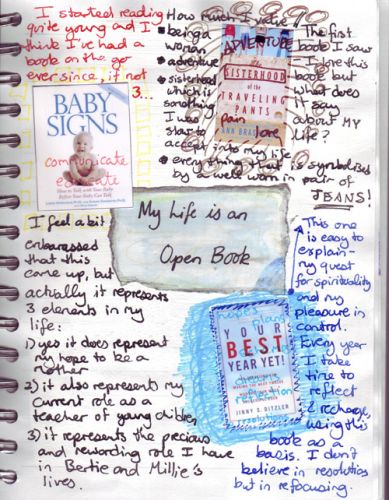 I started reading
quite young and I
think I've had a
book on the go
ever since, if not
3...
How much I value
• being a
woman
• adventure
• sisterhood
which is
something
I was
slow to
accept into my life
• everything that is symbolised
by a well worn in pair of
JEANS!
ADVENTURE
THE
SISTERHOOD
OF THE
TRAVELING
PANTS
pain
love
ANN BRAS
The first
book I saw
- I love this
book but
what does
it say
about MY
life?
BABY
SIGNS
communicate
educate
How to Talk with Your Baby
Before Your Baby Can Talk
My Life is an
Open Book
I feel a bit
embarassed
that this
came up, but
actually it represents
3 elements in my
life:
1) yes it does represent
my hope to be a
mother
2) it also represents my
current role as a
teacher of young children
3) it represents the precious
and rewarding role I have
in Bertie and Millie's
lives.
YOUR
BEST
YEAR YET!
JINNY S. DITZLER
This one
is easy to
explain -
my quest
for spirituality
and my
pleasure in
control.
Every year
I take
time to
reflect
& recharge,
using this
book as a
basis. I don't
believe in resolutions
but in refocusing.